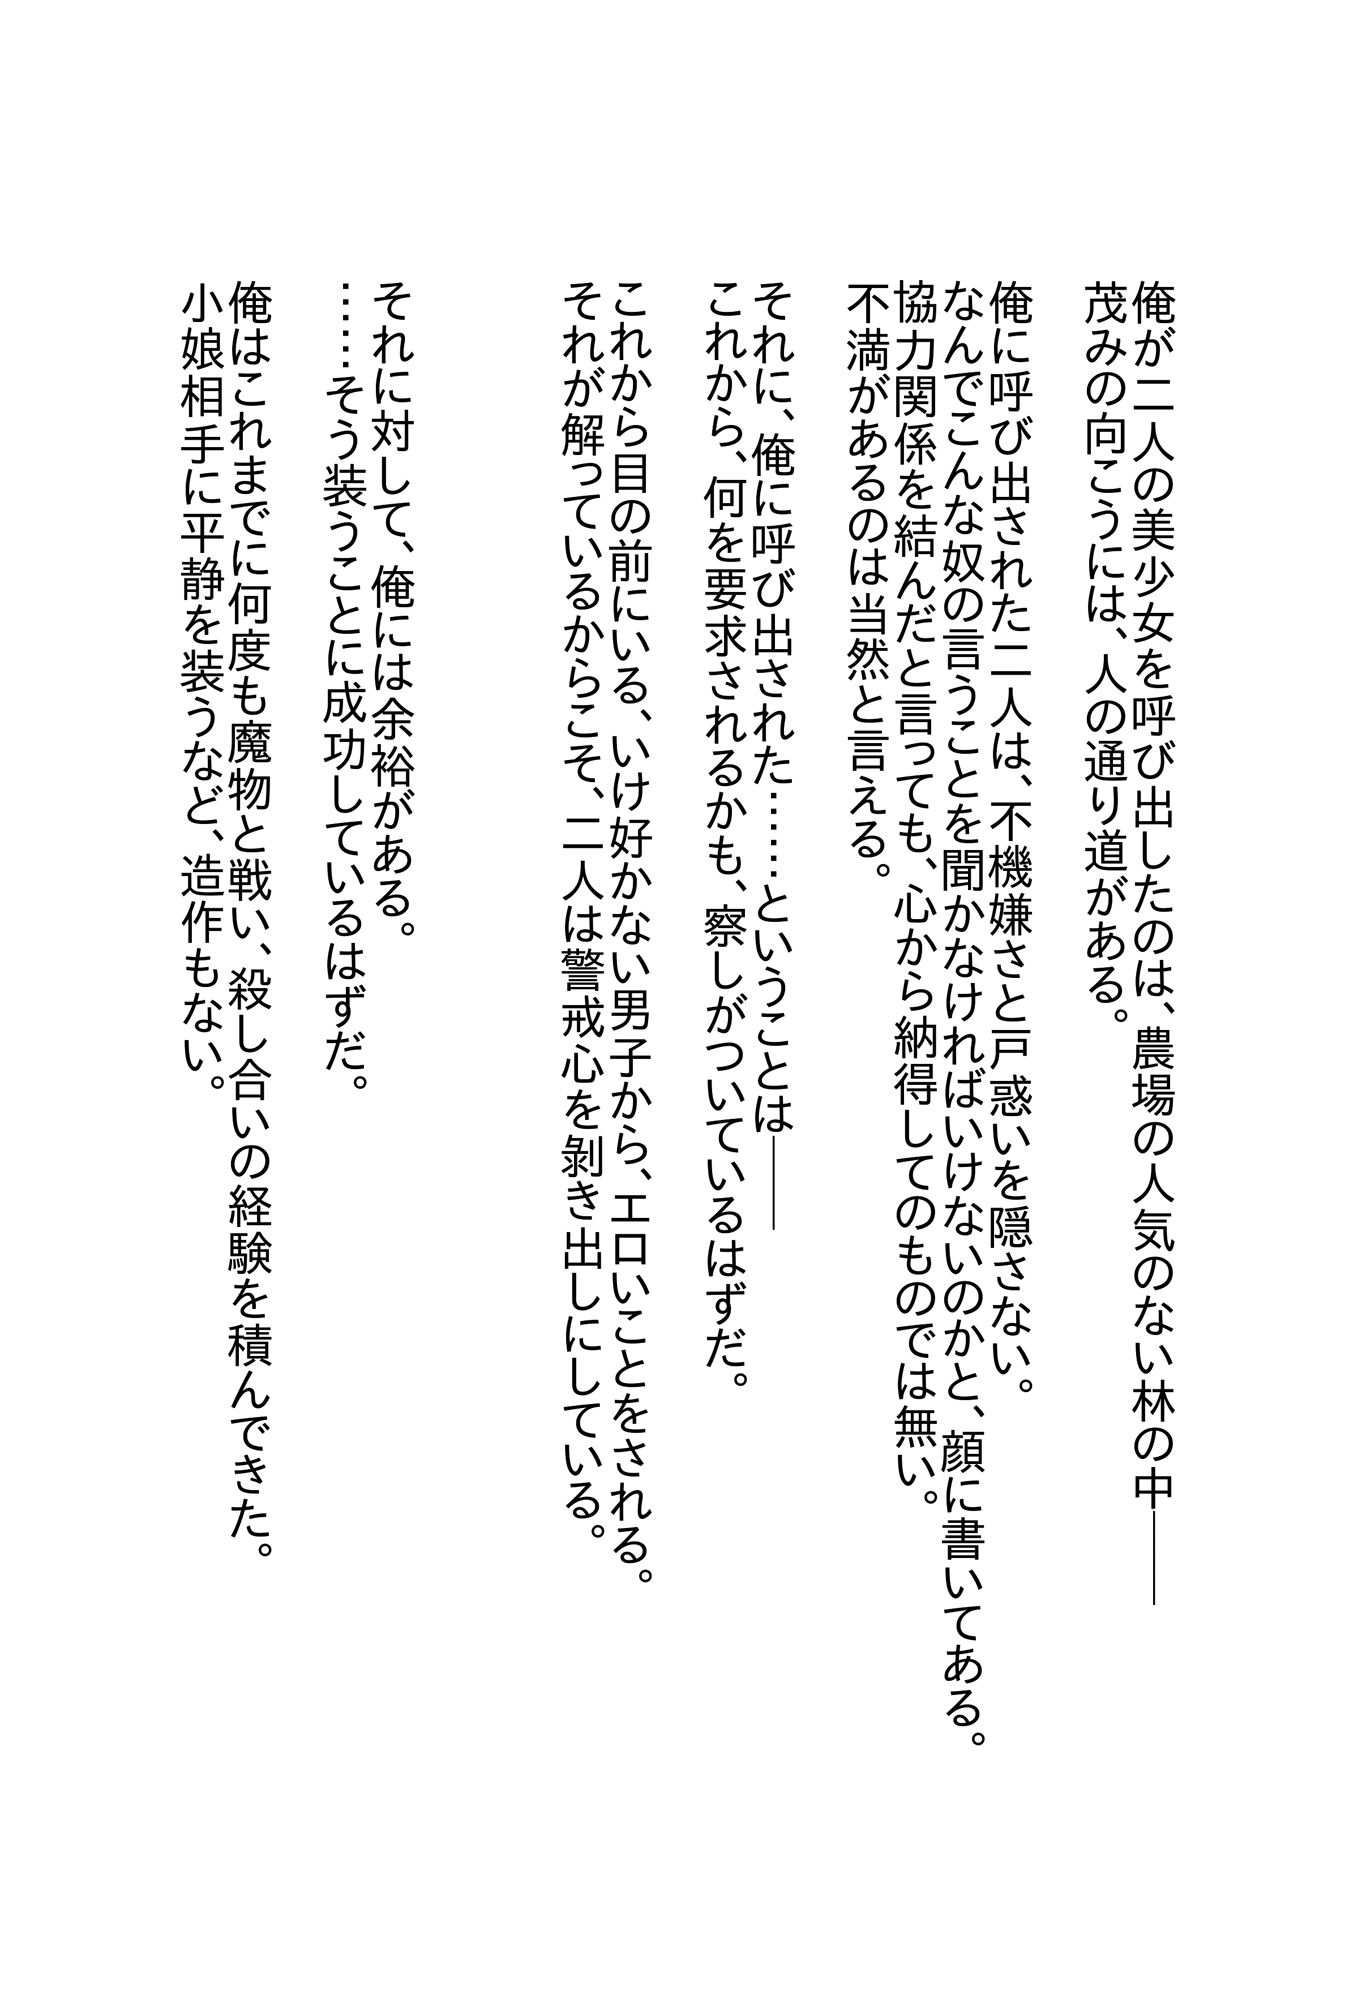 俺が二人の美少女を呼び出したのは、農場の人気のない林の中――
茂みの向こうには、人の通り道がある。
俺に呼び出された二人は、不機嫌さと戸惑いを隠さない。
なんでこんな奴の言うことを聞かなければいけないのかと、顔に書いてある。
協力関係を結んだと言っても、心から納得してのものでは無い。
不満があるのは当然と言える。
それに、俺に呼び出された……ということは――
これから、何を要求されるかも、察しがついているはずだ。
これから目の前にいる、いけ好かない男子から、エロいことをされる。
それが解っているからこそ、二人は警戒心を剝き出しにしている。
それに対して、俺には余裕がある。
……そう装うことに成功しているはずだ。
俺はこれまでに何度も魔物と戦い、殺し合いの経験を積んできた。
小娘相手に平静を装うなど、造作もない。